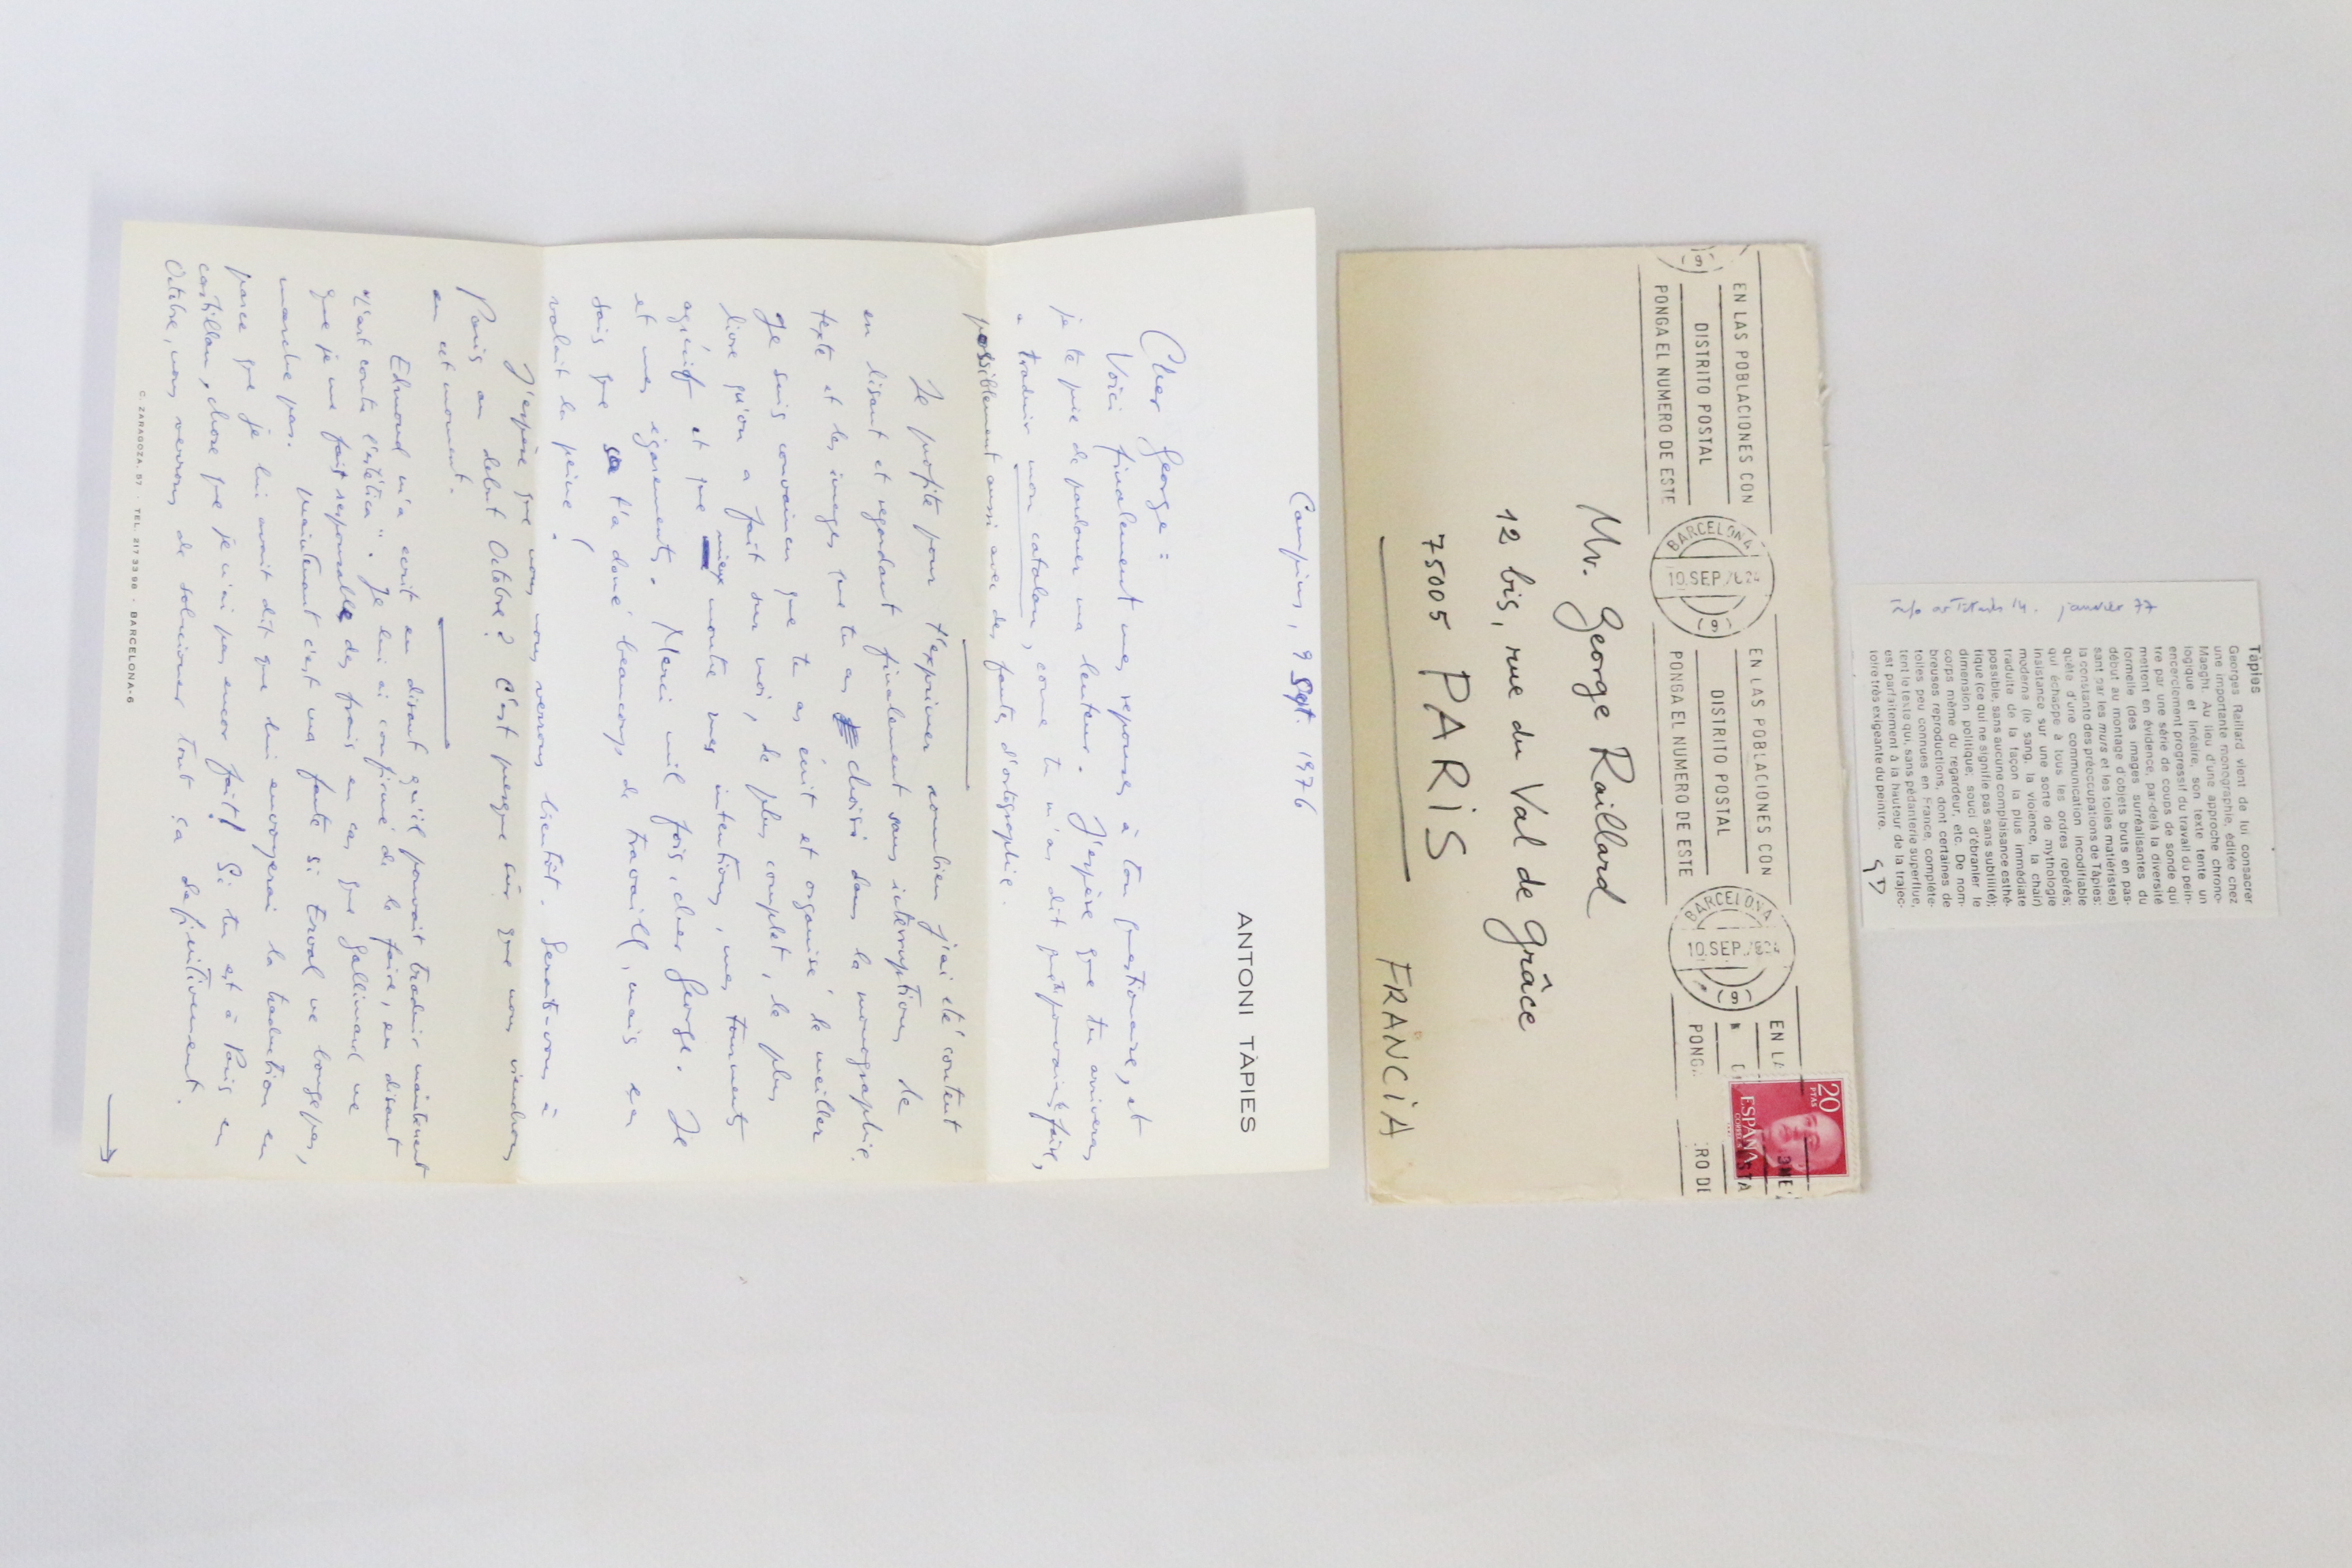 ANTONI TÀPIES
Campins, 9 Sept. 1976
Cher George :
Voici finalement mes reponses à ton questionaire, et
je te prie de pardoner ma lenteur. J'espère que tu arriveras
a traduir mon catalan, come tu m'as dit pouvais faire,
possiblement aussi avec des fautes d'ortographie.
Je profite pour t'exprimer combien j'ai eté content
en lisant et regardant finalement sans interruptions le
texte et les images que tu as choisi dans la monographie.
Je suis convaincu que tu as écrit et organisé le meiller
livre qu'on a fait sur moi, le plus complet, le plus
agréist et que mieux montre mes intentions, mes tourments
et mes égarements. Merci mil fois, cher George. Je
sais que ça t'a doné beaucoup de travaill, mais en
valait la peine !
J'espère que nous nous verrons bientôt. Serait-vous à
Paris au debut Octobre? C'est presque sûr que nous viendrons
en cet moment.
Edmond m'a ecrit en disant qu'il pouvait traduir maintenent
"L'art contra l'estètica". Je lui ai confirmé de le faire, en disant
que je me fais responsable des frais en cas que Gallimard ne
marche pas. Maintenant c'est ma faute si Erval ne bouge pas,
parce que je lui avait dit que lui envoyerai la traduction en
castillan, chose que je n'ai pas encor fait! Si tu est à Paris en
Octobre, nous verrons de solucioner tout ça definitivement.
C. ZARAGOZA, 57 - TEL. 217 33 98 - BARCELONA-6
EN LAS POBLACIONES CON
DISTRITO POSTAL
PONGA EL NUMERO DE ESTE
BARCELONA
10.SEP.76 24
(9)
EN LAS POBLACIONES CON
DISTRITO POSTAL
PONGA EL NUMERO DE ESTE
BARCELONA
10.SEP.
(9)
EN LA
PONGA
RO DE
20
PTAS
ESPAÑA
CORREOS
Mr. George Raillard
12 bis, rue du Val de Grâce
75005 PARIS
FRANCIA
Tàpies
Georges Raillard vient de lui consacrer
une importante monographie, éditée chez
Maeght. Au lieu d'une approche chrono-
logique et linéaire, son texte tente un
encerclement progressif du travail du pein-
tre par une série de coups de sonde qui
mettent en évidence, par-delà la diversité
formelle (des images surréalisantes du
début au montage d'objets bruts en pas-
sant par les murs et les toiles matiéristes)
la constante des préoccupations de Tàpies:
quête d'une communication incodifiable
qui échappe à tous les ordres repérés;
insistance sur une sorte de mythologie
moderne (le sang, la violence, la chair)
traduite de la façon la plus immédiate
possible, sans aucune complaisance esthé-
tique (ce qui ne signifie pas sans subtilité);
dimension politique; souci d'ébranler le
corps même du regardeur, etc. De nom-
breuses reproductions, dont certaines de
toiles peu connues en France, complète-
tent le texte qui, sans pédanterie superflue,
est parfaitement à la hauteur de la trajec-
toire très exigeante du peintre.
janvier 77